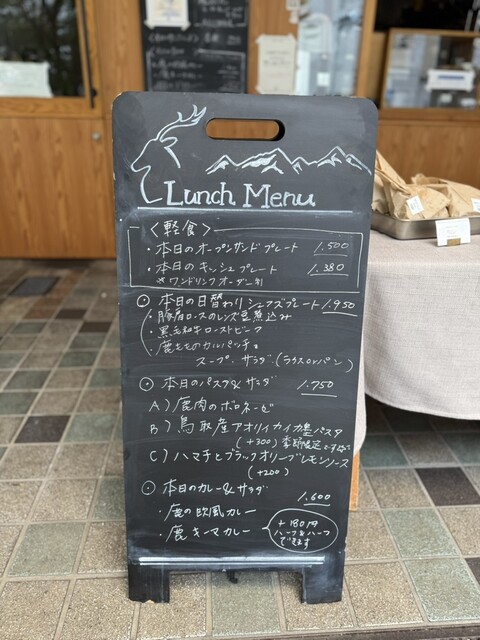 Lunch Menu
〈軽食〉
・本日のオープンサンドプレート 1.500
・本日のキッシュプレート 1.380
※ワンドリンクオーダー制
⊙ 本日の日替わりシェフズプレート 1.950
・豚肩ロースのレンズ豆煮込み
・黒毛和牛ローストビーフ
・鹿もものカルパッチョ
スープ、サラダ (ライスorパン)
⊙ 本日のパスタ&サラダ 1.750
A) 鹿肉のボロネーゼ
B) 鳥取産アオリイカイカ墨パスタ
(+300) 季節限定
C) ハマチとブラックオリーブレモンソース
(+200)
⊙ 本日のカレー&サラダ 1.600
・鹿の欧風カレー
・鹿キーマカレー
+180円
ハーフ&ハーフ
できます